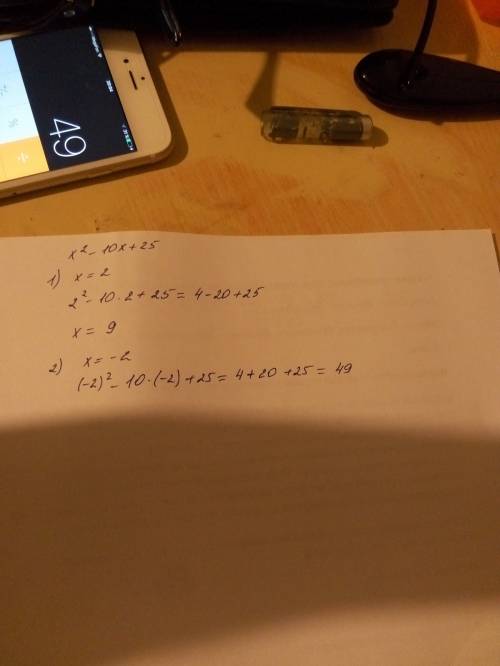 49
x² - 10x + 25
1) x = 2
2² - 10 · 2 + 25 = 4 - 20 + 25
x = 9
2) x = -2
(-2)² - 10 · (-2) + 25 = 4 + 20 + 25 = 49